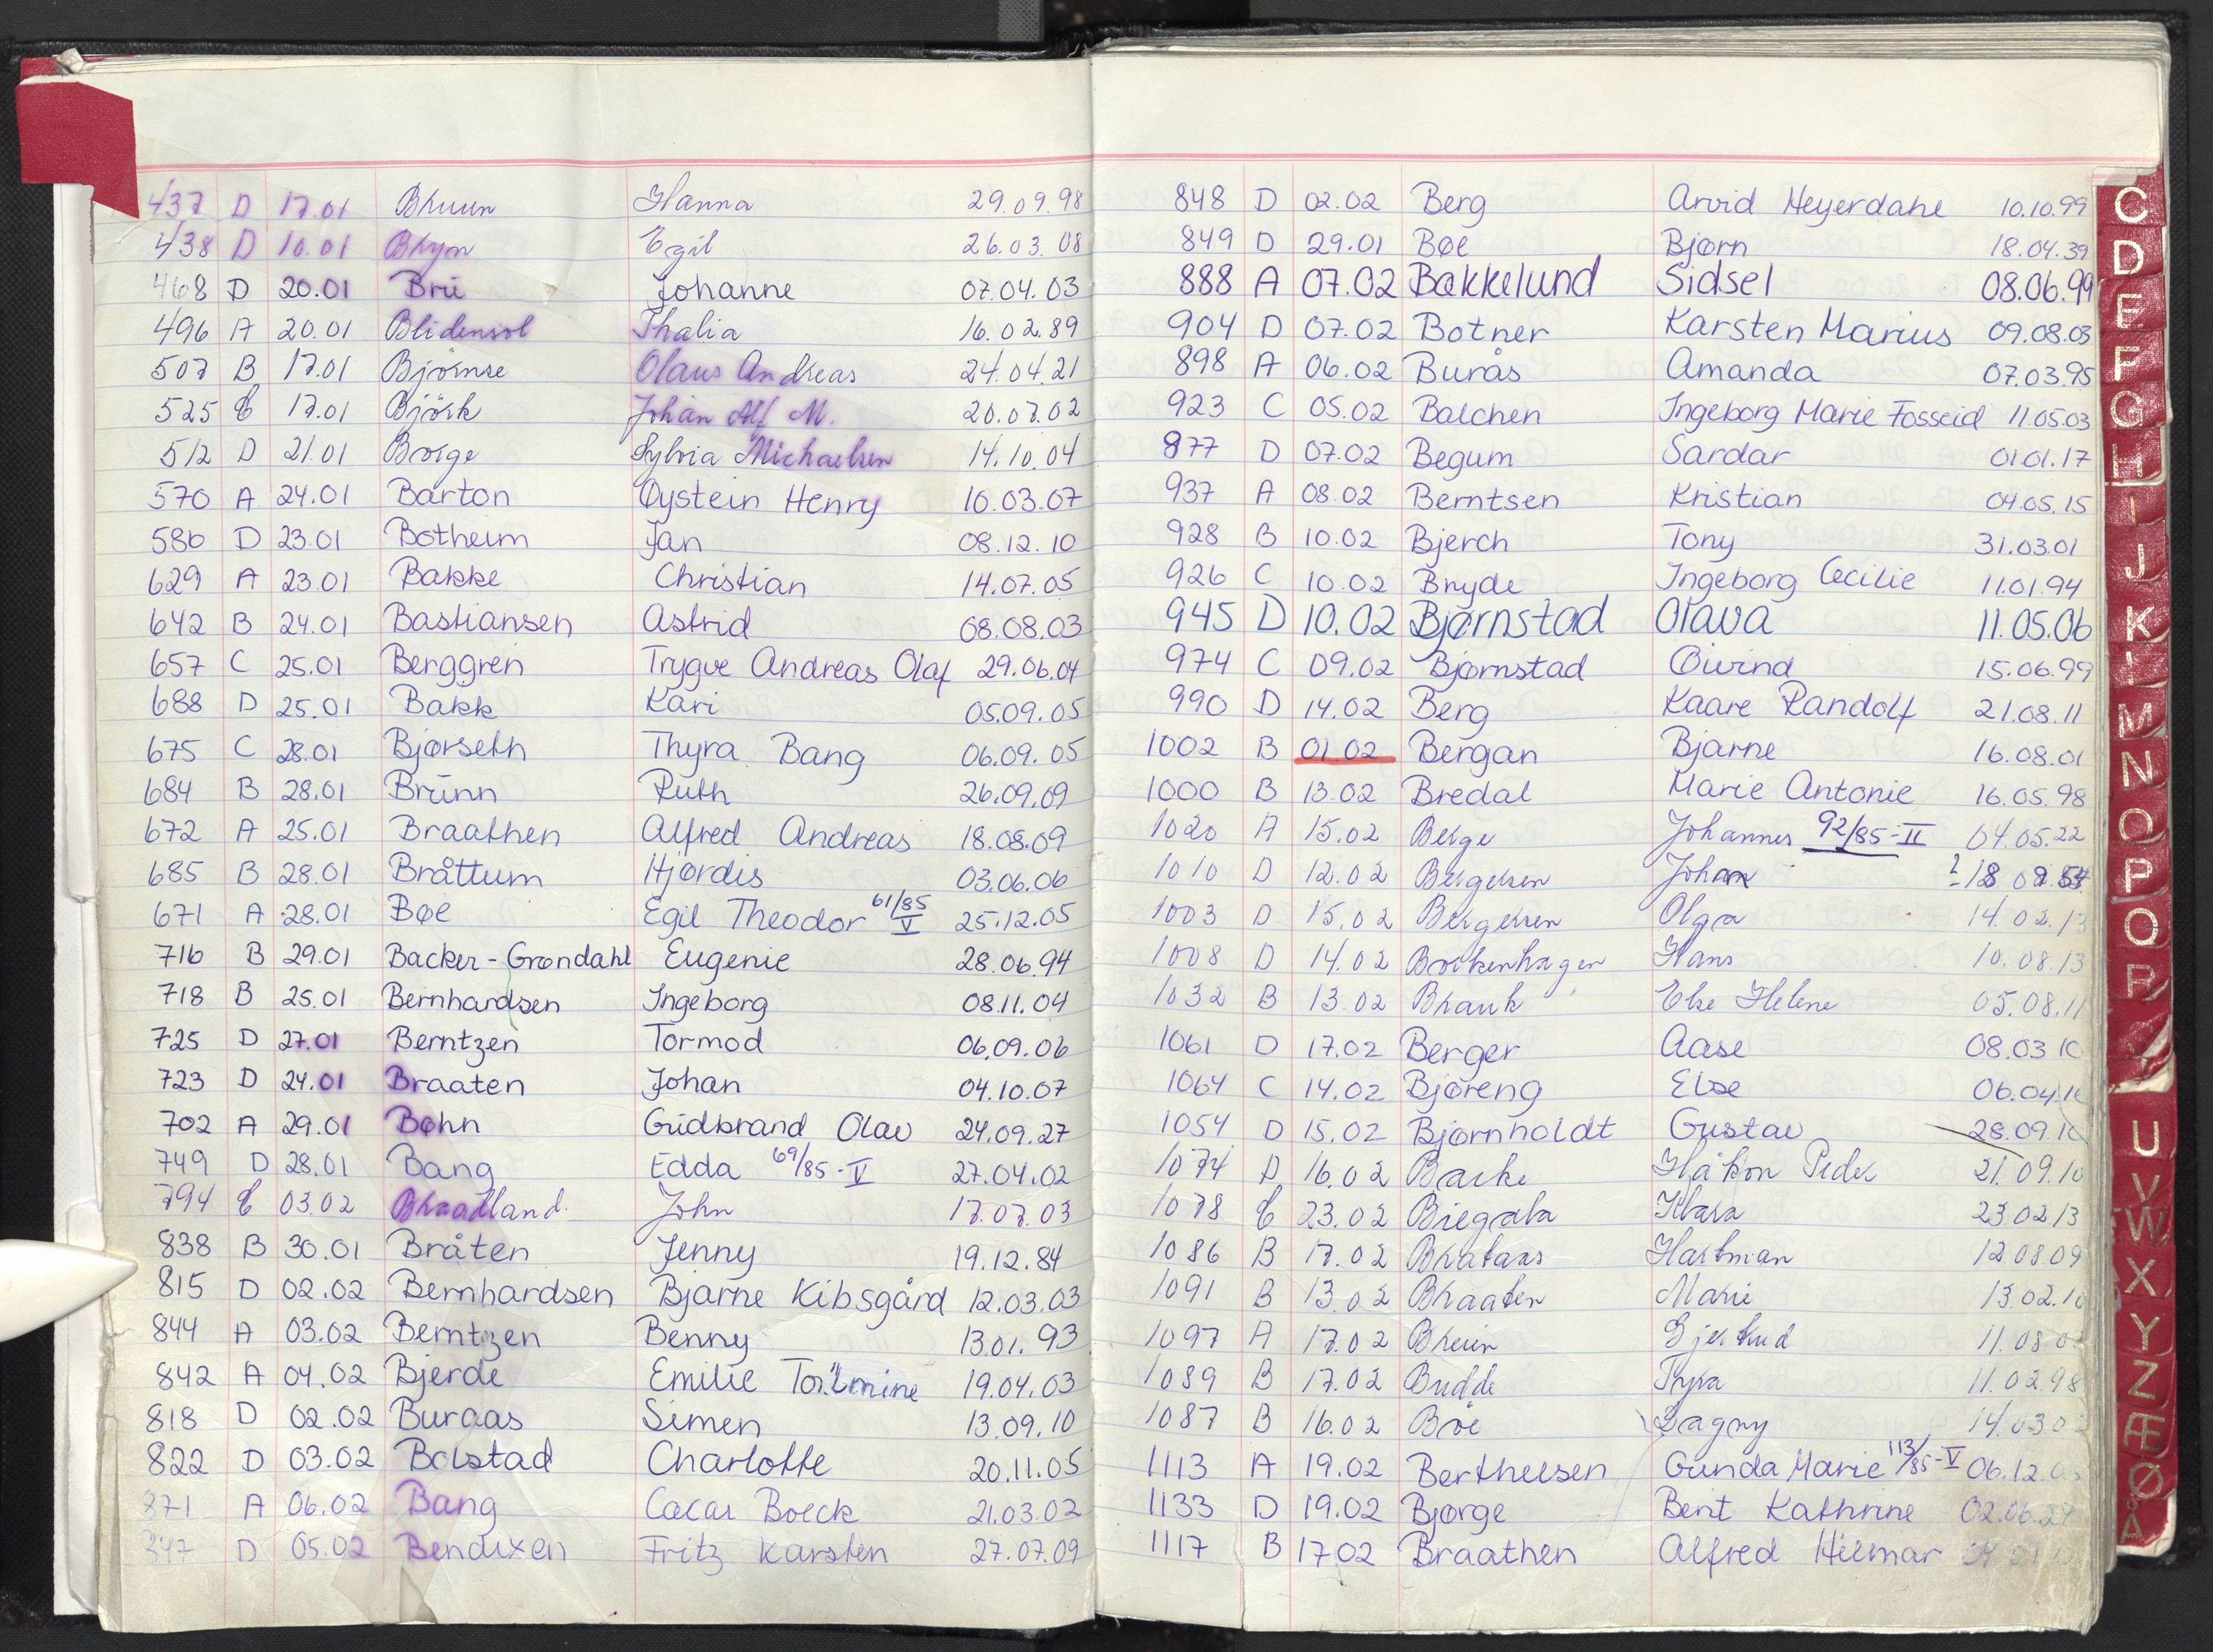 437 D 17.01 Bruun Hanna 29.09.98
438 D 10.01 Bryn Egil 26.03.08
468 D 20.01 Brü Johanne 07.04.03
496 A 20.01 Blidensol Thalia 16.02.89
507 B 17.01 Björnse Olaus Andreas 24.04.21
525 C 17.01 Björk Johan Alf M. 20.07.02
512 D 21.01 Borge Sylvia Michaelsen 14.10.04
570 A 24.01 Barton Øystein Henry 10.03.07
586 D 23.01 Botheim Jan 08.12.10
629 A 23.01 Bakke Christian 14.07.05
642 B 24.01 Bastiansen Astrid 08.08.03
657 C 25.01 Berggren Trygve Andreas Olaf 29.06.04
688 D 25.01 Bakk Kari 05.09.05
675 C 28.01 Bjørseth Thyra Bang 06.09.05
684 B 28.01 Brünn Ruth 26.09.09
672 A 25.01 Braathen Alfred Andreas 18.08.09
685 B 28.01 Bråttum Hjørdis 03.06.06
671 A 28.01 Bøe Egil Theodor 61/85 V 25.12.05
716 B 29.01 Backer-Grøndahl Eugenie 28.06.94
718 B 25.01 Bernhardsen Ingeborg 08.11.04
725 D 27.01 Berntzen Tormod 06.09.06
723 D 24.01 Braaten Johan 04.10.07
702 A 29.01 Bøhn Gudbrand Olav 24.09.27
749 D 28.01 Bang Edda 69/85-V 27.04.02
794 C 03.02 Braadland John 17.07.03
838 B 30.01 Bråten Jenny 19.12.84
815 D 02.02 Bernhardsen Bjarne Kibsgård 12.03.03
844 A 03.02 Berntzen Benny 13.01.93
842 A 04.02 Bjerde Emilie 19.04.03
818 D 02.02 Buraas Simen 13.09.10
822 D 03.02 Bolstad Charlotte 20.11.05
871 A 06.02 Bang Cæcar Boeck 21.03.02
847 D 05.02 Bendixen Fritz Karsten 27.07.09
848 D 02.02 Berg Arvid Heyerdahl 10.10.99
849 D 29.01 Bøe Bjørn 18.04.39
888 A 07.02 Bakkelund Sidsel 08.06.99
904 D 07.02 Botner Karsten Marius 09.08.03
898 A 06.02 Burås Amanda 07.03.95
923 C 05.02 Balchen Ingeborg Marie Fosseid 11.05.03
877 D 07.02 Begum Sardar 01.01.17
937 A 08.02 Berntsen Kristian 04.05.15
928 B 10.02 Bjerch Tony 31.03.01
926 C 10.02 Bryde Ingeborg Cecilie 11.01.94
945 D 10.02 Bjørnstad Olava 11.05.06
974 C 09.02 Bjørnstad Øivind 15.06.99
990 D 14.02 Berg Kaare Randolf 21.08.11
1002 B 01.02 Bergan Bjarne 16.08.01
1000 B 13.02 Bredal Marie Antonie 16.05.98
1020 A 15.02 Berge Johannes 92/85-II 04.05.22
1010 D 12.02 Bergersen Johan
1003 D 15.02 Bergersen Olga 14.02.13
1008 D 14.02 Brockenhagen Hans 10.08.13
1032 B 13.02 Brauk Else Helene 05.08.11
1061 D 17.02 Berger Aase 08.03
1064 C 14.02 Bjøreng Else 06.04
1054 D 15.02 Bjørnholdt Gustav 28.09
1074 D 16.02 Backe Håkon Peder 21.09.10
1078 C 23.02 Biegala Klara 23.02 13
1086 B 17.02 Brataas Hartman 12.08 09
1091 B 13.02 Braaten Marie 13.02.10
1097 A 17.02 Breien Gjertrud 11.08
1089 B 17.02 Budde Thyra 11.02.98
1087 B 16.02 Böe Dagny 14.03
1113 A 19.02 Berthelsen Gunda Marie 113/85-V 06.12
1133 D 19.02 Bjørge Berit Kathrine 02.06.24
1117 B 17 02 Braathen Alfred Hilmar
C
D
E
F
G
H
I
J
K
L
M
N
O
P
Q
R
U
V
W
X
Y
Z
Æ
Ø
Å